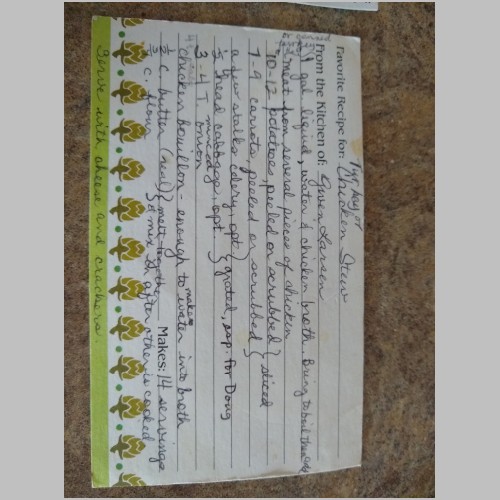 Pyr, Key of
Favorite Recipe for: Chicken Stew
From the Kitchen of: Gwen Larsen
1 gal. liquid, water & chicken broth. Bring to boil then add
meat from several pieces of chicken
10-12 potatoes, peeled or scrubbed } sliced
7-9 carrots, peeled or scrubbed
a few stalks celery, opt. } grated, esp. for Doug
head cabbage, opt.
3-4 T. minced onion
chicken bouillon - enough to make water into broth
Makes: 14 servings
1/2 c. butter (real) } melt together
c. flour } & mix in after other is cooked
Serve with cheese and crackers.